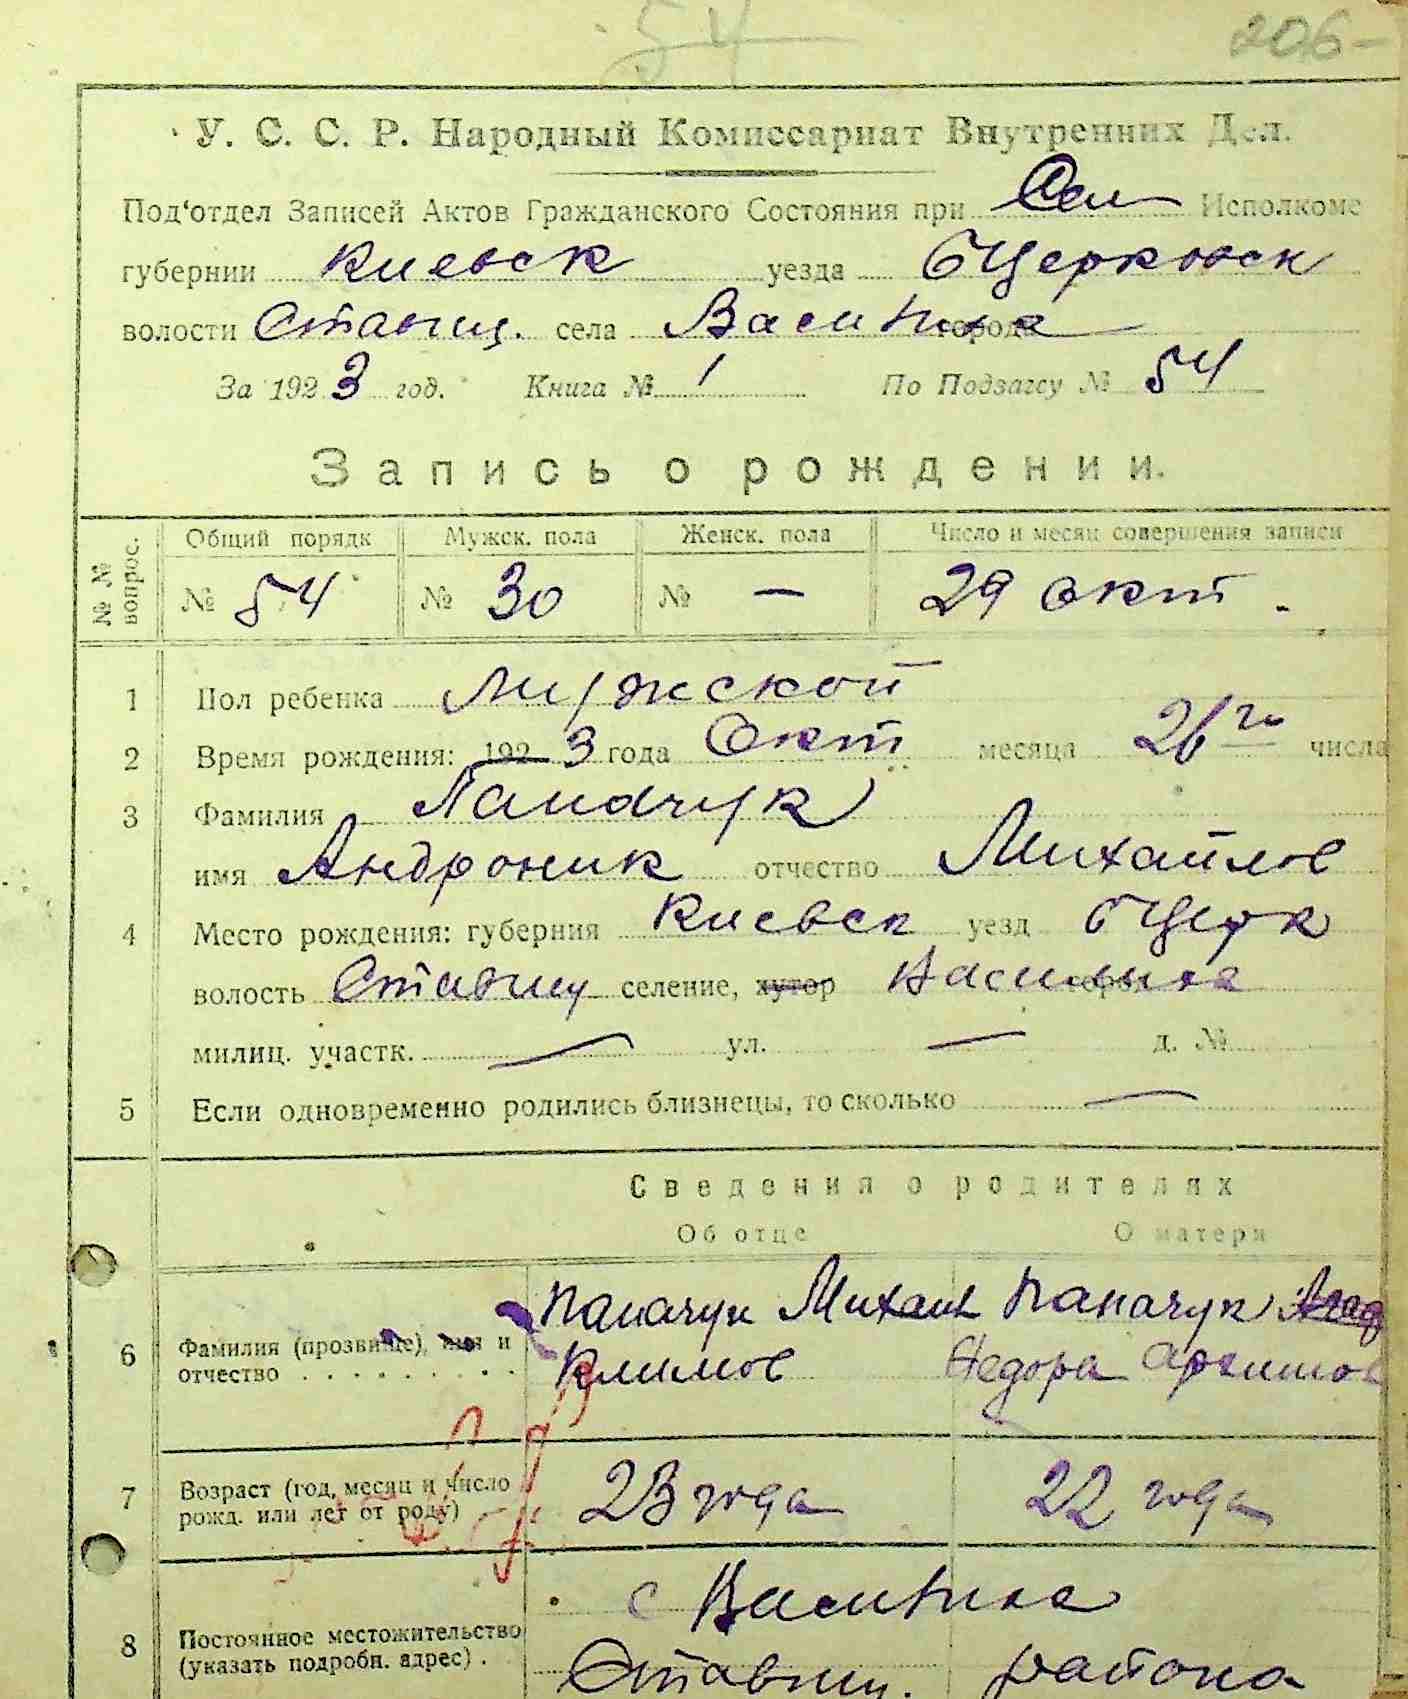 54
206-
У. С. С. Р. Народный Комиссариат Внутренних Дел.
Под‘отдел Записей Актов Гражданского Состояния при Сел Исполкоме
губернии Киевск уезда БЦерковск
волости Ставищ. села города Василиха
За 1923 год. Книга № 1 По Подзагсу № 54
Запись о рождении.
№ № вопрос. Общий порядк Мужск. пола Женск. пола Число и месяц совершения записи
№ 54 № 30 № — 29 окт.
1 Пол ребенка Мужской
2 Время рождения: 1923 года Окт месяца 26го числа
3 Фамилия Папачук
имя Андроник отчество Михайлов
4 Место рождения: губерния Киевск уезд БЦерк
волость Ставищ селение, хутор город Василиха
милиц. участк. — ул. — д. №
5 Если одновременно родились близнецы, то сколько —
Сведения о родителях
Об отце О матери
6 Фамилия (прозвище), имя и Папачук Михаил Папачук
отчество . . . . . . . . Климов Федора
7 Возраст (год, месяц и число
рожд. или лет от роду) 23 года 22 года
с Василиха
8 Постоянное местожительство
(указать подробн. адрес) . Ставищ. района